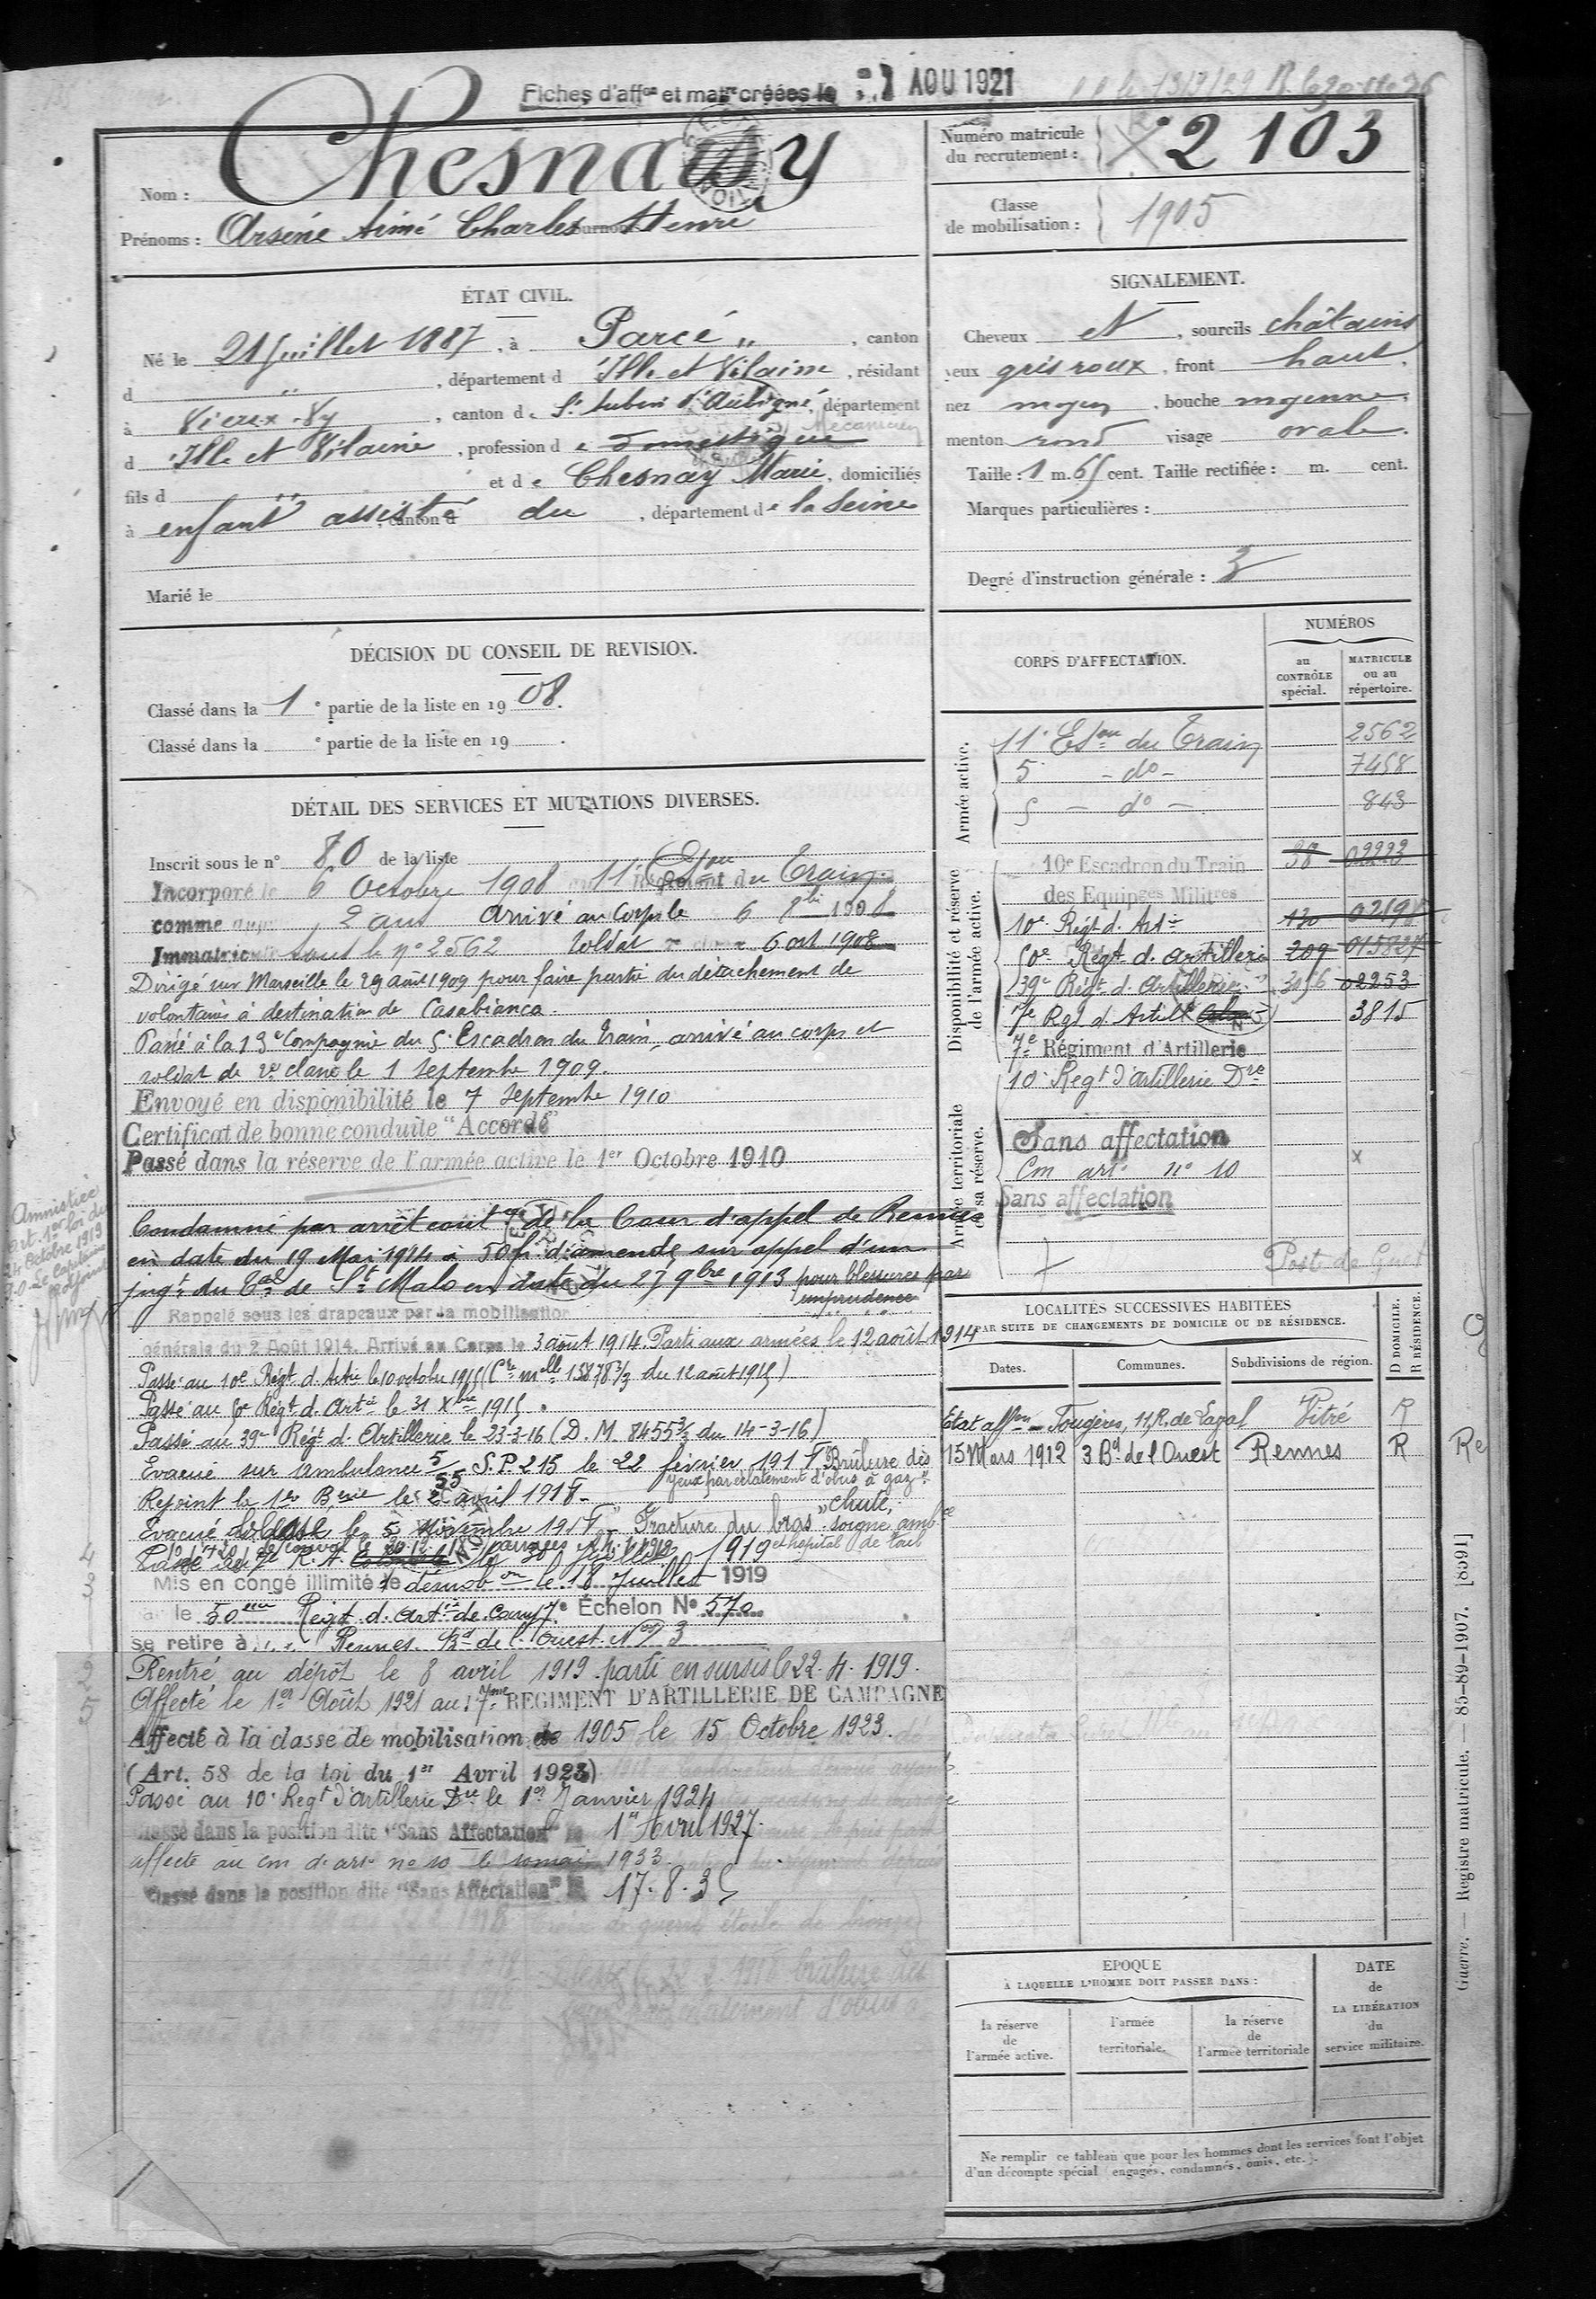 Fiches d'affon et matr créées le 1 AOU 1921
Nom : Chesnay
Prénoms : Arsène Aimé Charles Henri
Numéro matricule du recrutement : 2103
Classe de mobilisation : 1905
ÉTAT CIVIL.
Né le 21 Juillet 1887, à Parcé „ , canton
d „ , département d Ille et Vilaine, résidant
à Vieux-Vy , canton de St Aubin d'Aubigné, département
Mécanicien
d Ille et Vilaine , profession de Domestique
fils d „ et de Chesnay Marie, domiciliés
à enfant assisté , canton d du , département de la Seine
Marié le
SIGNALEMENT.
Cheveux et , sourcils châtains
yeux gris roux , front haut,
nez moyen , bouche moyenne,
menton rond visage ovale.
Taille : 1 m. 65 cent. Taille rectifiée : m. cent.
Marques particulières :
Degré d'instruction générale : 3
DÉCISION DU CONSEIL DE REVISION.
Classé dans la 1e partie de la liste en 1908.
Classé dans la e partie de la liste en 19 .
DÉTAIL DES SERVICES ET MUTATIONS DIVERSES.
Inscrit sous le n° 80 de la liste
Incorporé le 6 Octobre 1908 au 11e Eson du Train.
comme 2 ans arrivé au Corps le 6 8bre 1908
Immatriculé sous le n° 2562 Soldat 6 oct 1908
Dirigé sur Marseille le 29 août 1909 pour faire partie du détachement de
volontaires à destination de Casablanca.
Passé à la 13e Compagnie du 5e Escadron du train, arrivé au corps et
soldat de 2e classe le 1 Septembre 1909.
Envoyé en disponibilité le 7 Septembre 1910
Certificat de bonne conduite "Accordé"
Passé dans la réserve de l'armée active le 1er Octobre 1910
Amnistié
art. 1er loi du
24 Octobre 1919
P.O. Le Capitaine
adjoint
Condamné par arrêt contre de la Cour d'appel de Rennes
en date du 19 Mai 1914 à 50 fr d'amende sur appel d'un
jugt du Tal de St Malo en date du 27 9bre 1913 pour blessures par
imprudence
Rappelé sous les drapeaux par la mobilisation
générale du 2 Août 1914. Arrivé au Corps le 3 août 1914. Parti aux armées le 12 août 1914
Passé au 10e Régt d. Artie le 10 octobre 1915 (Cre mlle 15878 2/3 du 12 août 1915)
Passé au 50e Régt d. Artie le 31 Xbre 1915.
Passé au 39e Régt d. Artillerie le 23-3-16 (D. M. 8455 3/3 du 14-3-16)
Evacué sur ambulance 5/55 S.P. 215 le 22 février 1918 "Brûlure des
yeux par éclatement d'obus à gaz".
Rejoint la 1re Brie le 2 avril 1918-
Evacué le 5 novembre 1918 "Fracture du bras" chute,
soigné ambce
et hôpital de Toul
Passé au 7e R. A. le 30 Juillet 1919
Mis en congé illimité de démobon le 18 Juillet 1919
par le 50eme Régt d. Artie de Camp 7e Échelon N° 570
se retire à Rennes Bd de l'Ouest N° 3
Rentré au dépôt le 8 avril 1919. parti en sursis le 22.4.1919.
Affecté le 1er Août 1921 au 7me REGIMENT D'ARTILLERIE DE CAMPAGNE
Affecté à la classe de mobilisation de 1905 le 15 Octobre 1923.
(Art. 58 de la loi du 1er Avril 1923)
Passé au 10e Regt d'artillerie Dre le 1er Janvier 1924
Classé dans la position dite "Sans Affectation" le 1er Avril 1927.
affecté au cm d'arte no 10 le 10 mai 1933.
Classé dans la position dite "Sans Affectation" le 17.8.35
CORPS D'AFFECTATION.
NUMÉROS
au CONTRÔLE spécial.
MATRICULE ou au répertoire.
Armée active.
11e Eson du Train 2562
5 - do - 7458
5 - do - 843
Disponibilité et réserve de l'armée active.
10e Escadron du Train 38 02223
des Equipages Militres
10e Régt d. Artie 130
50e Régt d. Artillerie 209
39e Régt d. Artillerie 3056 02253
7e Rgt d Artill 3815
7e Régiment d'Artillerie
Armée territoriale et sa réserve.
10e Regt d'artillerie Dre
Sans affectation
Cm arte no 10 x
Sans affectation
LOCALITÉS SUCCESSIVES HABITÉES
PAR SUITE DE CHANGEMENTS DE DOMICILE OU DE RÉSIDENCE.
Dates. Communes. Subdivisions de région. D DOMICILE. R RÉSIDENCE.
Etat affon - Fougères, 11, R. de Laval Vitré R
15 Mars 1912 3 Bd de l'Ouest Rennes R
ÉPOQUE
À LAQUELLE L'HOMME DOIT PASSER DANS :
la réserve de l'armée active.
l'armée territoriale.
la réserve de l'armée territoriale
DATE de LA LIBÉRATION du service militaire.
Ne remplir ce tableau que pour les hommes dont les services font l'objet
d'un décompte spécial (engagés, condamnés, omis, etc.).
Guerre. — Registre matricule. — 85-89-1907. [8591]